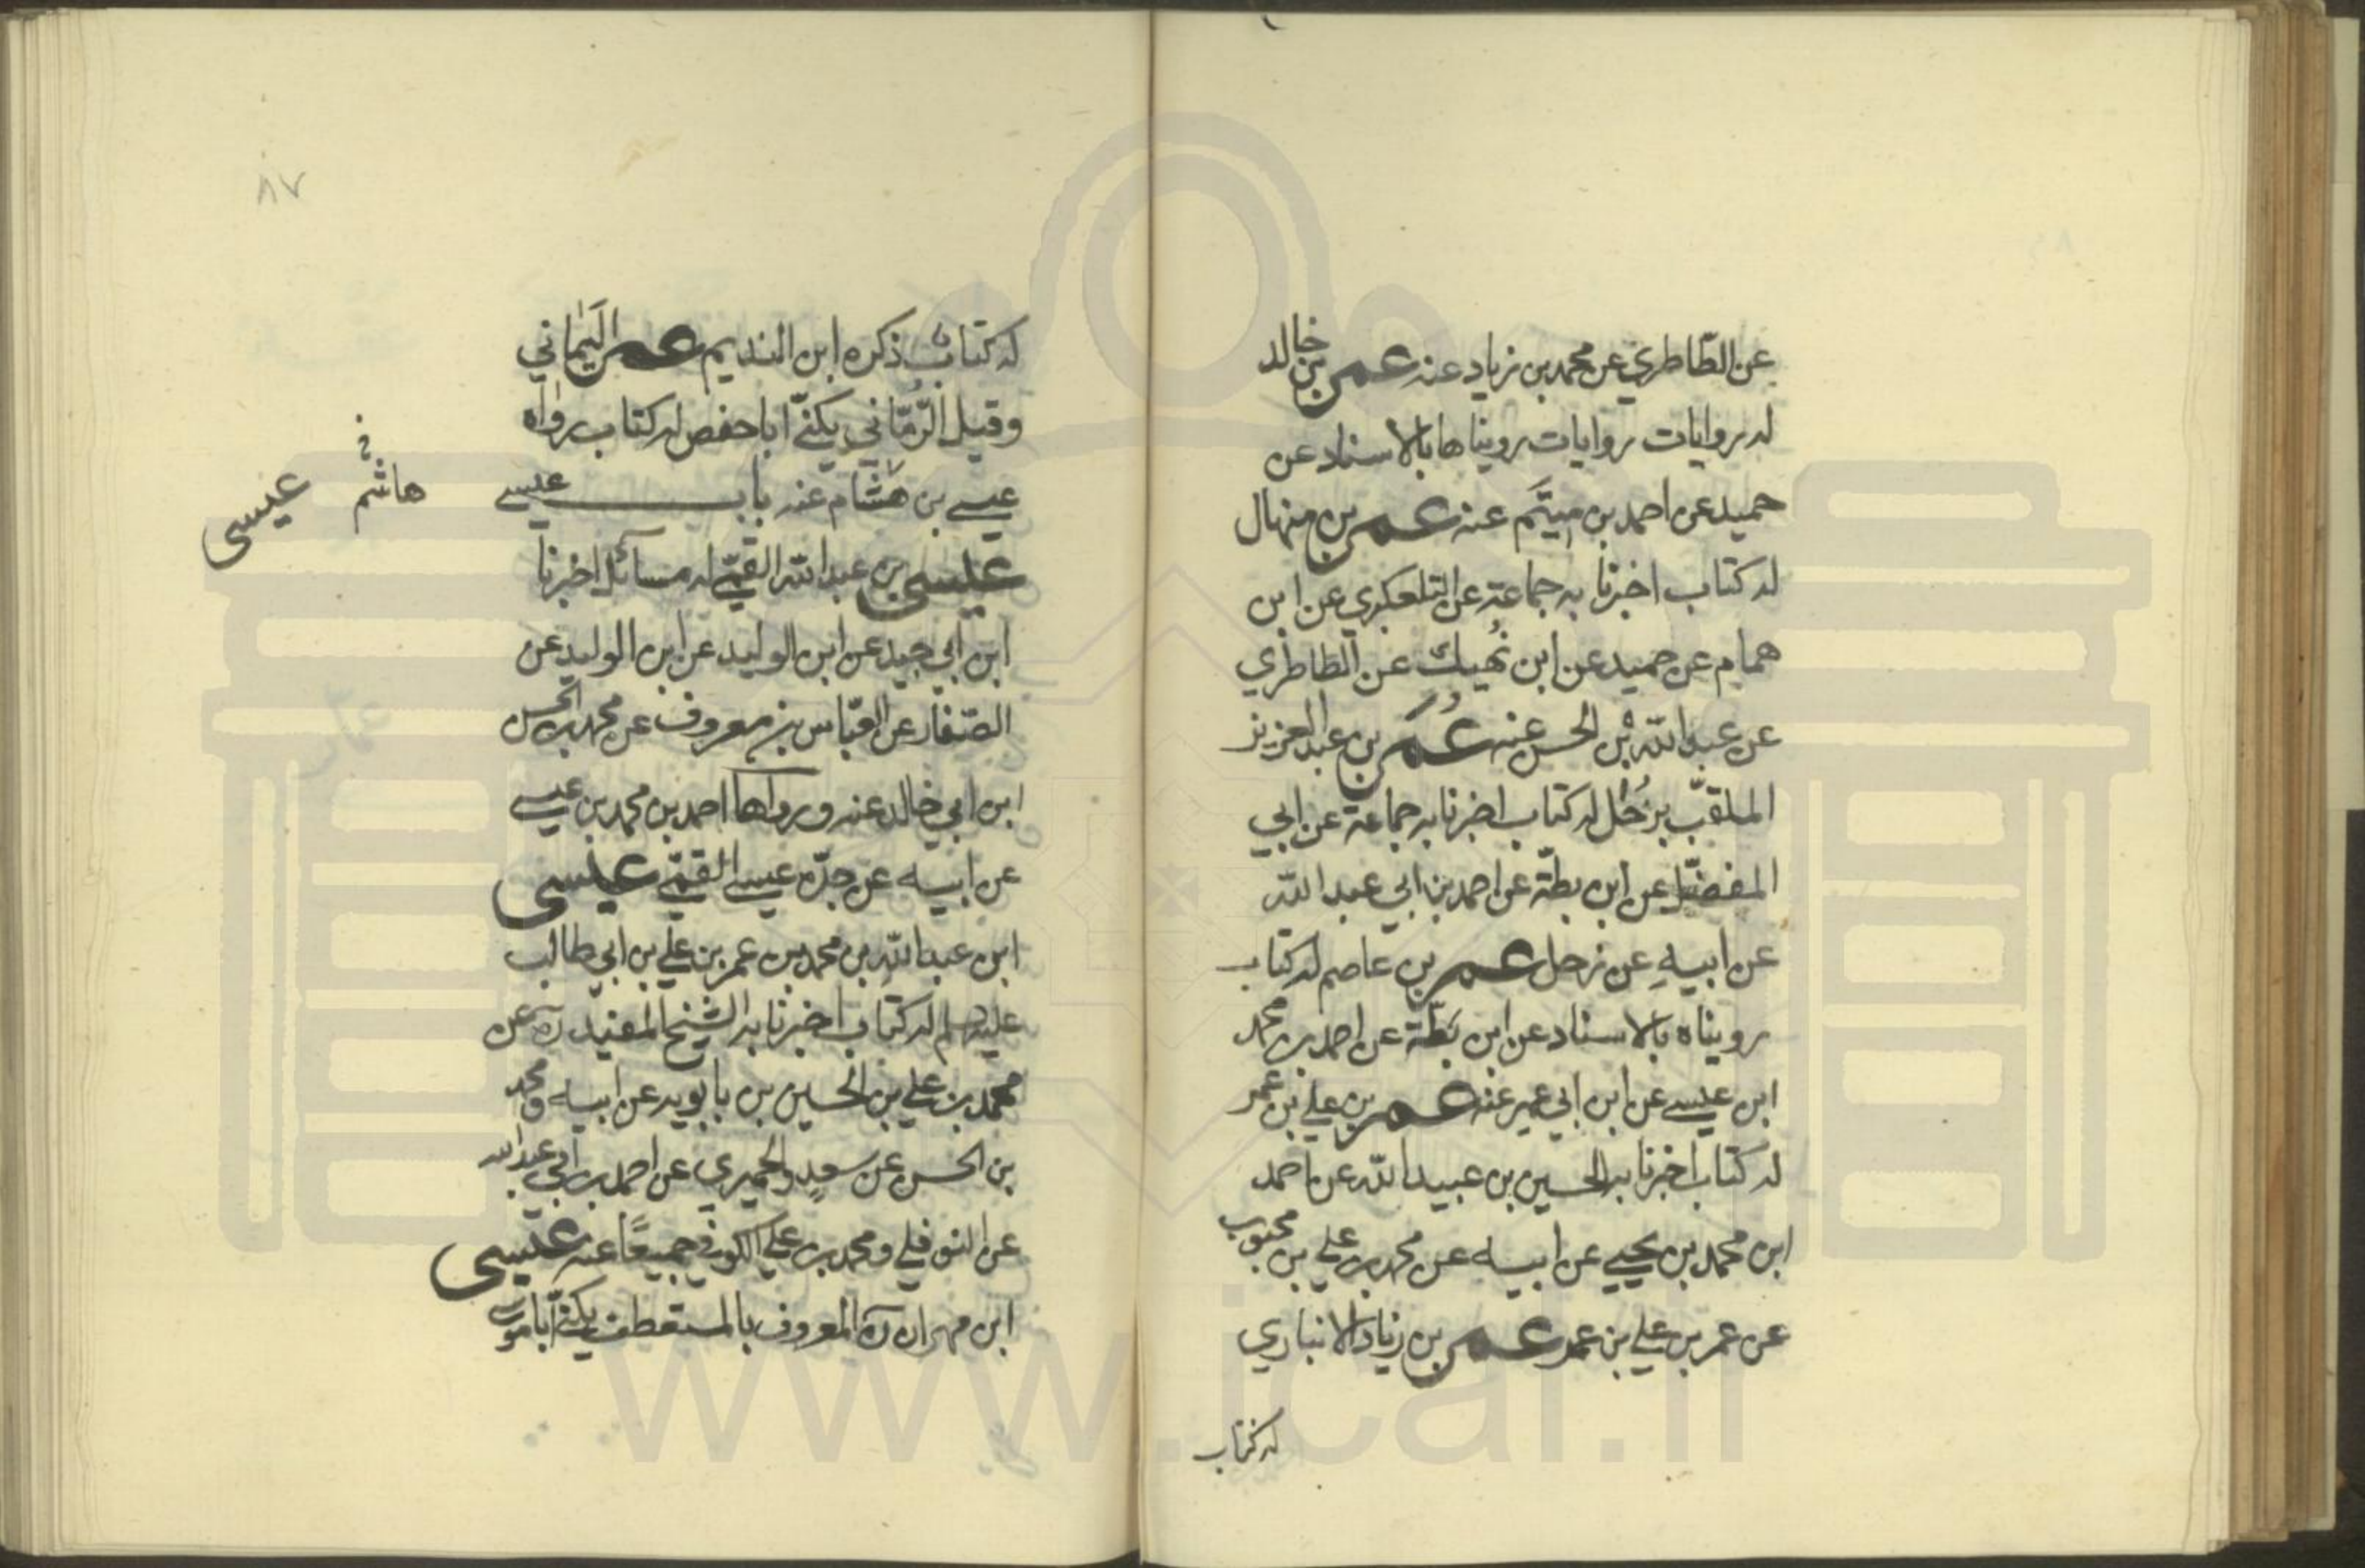 عن الطّاطري عن محمد بن زياد عنه عمر بن خالد
له روايات روايات رويناها بالاسناد عن
حميد عن احمد بن ميثَم عنه عمر بن منهال
له كتاب اخبرنا به جماعة عن التلعكبري عن ابن
همام عن حميد عن ابن نُهيك عن الطاطري
عن عبد الله بن الحسن عنه عُمَر بن عبد العزيز
الملقّب بزُحَل له كتاب اخبرنا به جماعة عن ابي
المفضّل عن ابن بطّة عن احمد بن ابي عبد الله
عن ابيه عن زحل عمر بن عاصم له كتاب
رويناه بالاسناد عن ابن بَطّة عن احمد بن محمد
ابن عيسى عن ابن ابي عمير عنه عمر بن علي بن عمر
له كتاب اخبرنا به الحسين بن عبيد الله عن احمد
ابن محمد بن يحيى عن ابيه عن محمد بن علي بن محبوب
عن عمر بن علي بن عمر عمر بن زياد الانباري
له كتاب
٨٧
له كتاب ذكره ابن النديم عمر اليَماني
وقيل الرُّمّاني يكنّى ابا حفص له كتاب رواه
عيسى بن هَشام عنه باب عيسى
هاشم
عيسى
عيسى بن عبد الله القمّي له مسائل اخبرنا
ابن ابي جيد عن ابن الوليد عن ابن الوليد عن
الصّفار عن العبّاس بن معروف عن محمد بن الحسن
ابن ابي خالد عنه ورواها احمد بن محمد بن عيسى
عن ابيه عن جدّه عيسى القمّي عيسى
ابن عبد الله بن محمد بن عمر بن علي بن ابي طالب
عليه السلم له كتاب اخبرنا به الشيخ المفيد ره عن
محمد بن علي بن الحسين بن بابويه عن ابيه ومحمد
بن الحسن عن سعدٍ والحميري عن احمد بن ابي عبد الله
عن النوفلي ومحمد بن علي الكوفي جميعًا عنه عيسى
ابن مهران ره المعروف بالمستعطف يكنّى ابا موسى
www.ical.ir